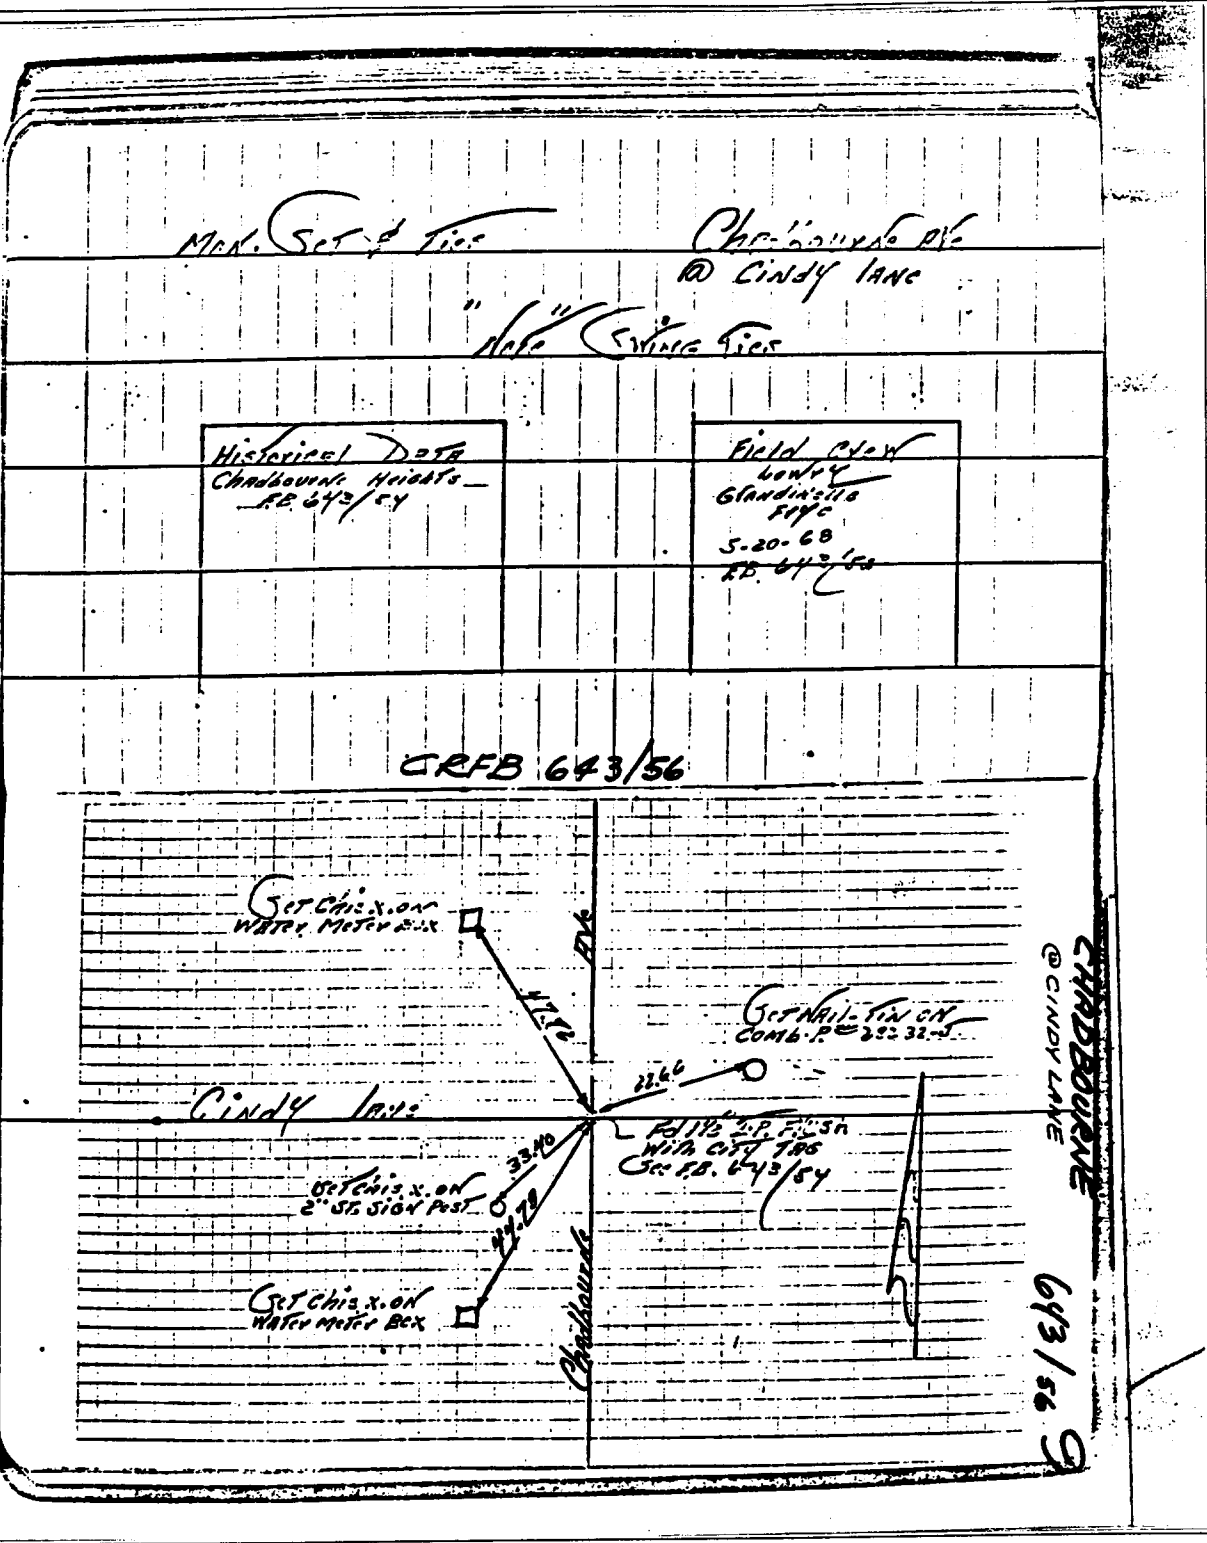 Mon. Set & Ties
Chadbourne Ave
@ Cindy Lane
"Note" Swing Ties
Historical Data
Chadbourne Heights
F.B. 643/54
Field Crew
Lowry
5-20-68
F.B. 643/
CRFB 643/56
Set Chis. X. on
Water Meter Box
Ave
47.92
Set Nail-Tin on
Comb. P.#
22.66
Cindy Lane
Fd 1½" I.P. Flush
With City TAG
See F.B. 643/54
33.40
Set Chis. X. on
2" St. Sign Post
44.78
Set Chis. X. on
Water Meter Box
Chadbourne
CHADBOURNE
@ CINDY LANE
643/56